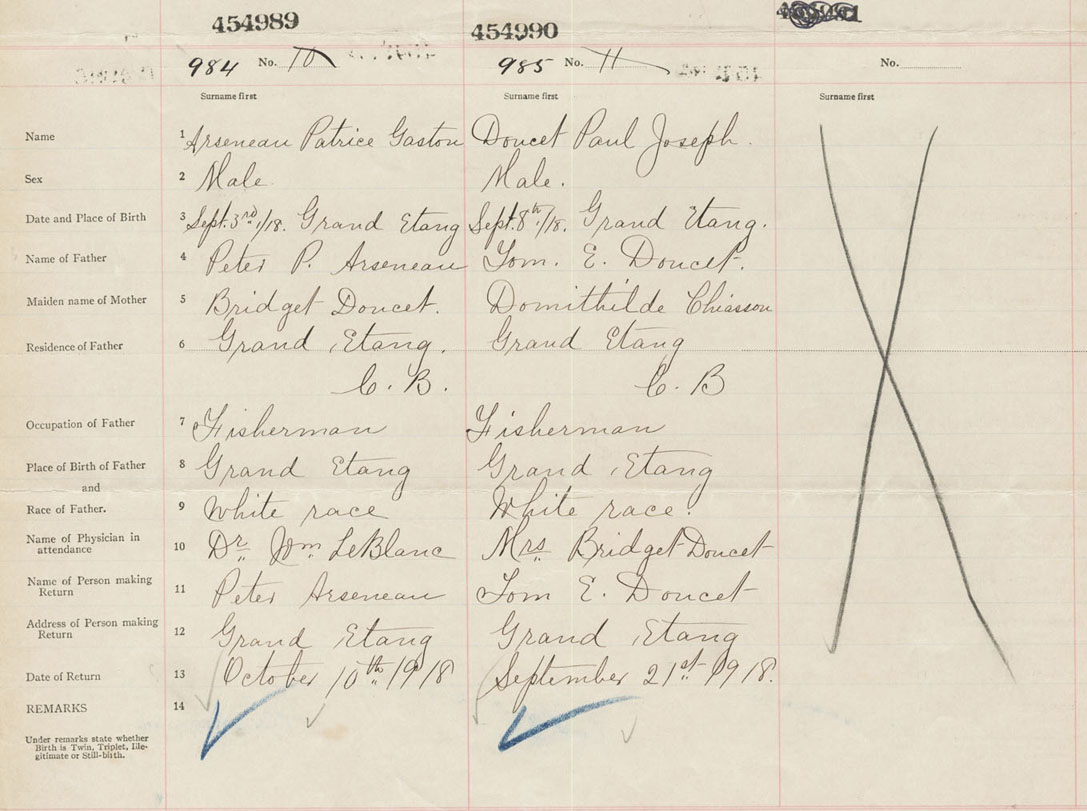 454989 454990
984 No. 10 985 No. 11 No.
Surname first Surname first Surname first
Name 1 Arseneau Patrice Gaston Doucet Paul Joseph.
Sex 2 Male. Male.
Date and Place of Birth 3 Sept. 3rd/18. Grand Etang Sept. 8th/18. Grand Etang.
Name of Father 4 Peter P. Arseneau Tom. E. Doucet.
Maiden name of Mother 5 Bridget Doucet. Domithilde Chiasson
Residence of Father 6 Grand Etang. Grand Etang
C. B. C. B
Occupation of Father 7 Fisherman Fisherman
Place of Birth of Father 8 Grand Etang Grand Etang
and
Race of Father. 9 White race White race.
Name of Physician in
attendance 10 Dr Wm LeBlanc Mrs Bridget Doucet
Name of Person making
Return 11 Peter Arseneau Tom E. Doucet
Address of Person making
Return 12 Grand Etang Grand Etang
Date of Return 13 October 10th 1918 September 21st 1918.
REMARKS 14
Under remarks state whether
Birth is Twin, Triplet, Ille-
gitimate or Still-birth.